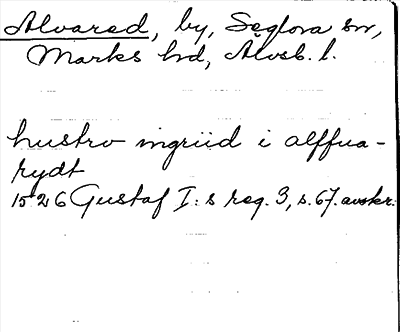 Alvared, by, Seglora sn,
Marks hd, Älvsb. l.
hustro ingriid i alffua-
rydt
1526 Gustaf I:s reg. 3, s. 67. avskr.